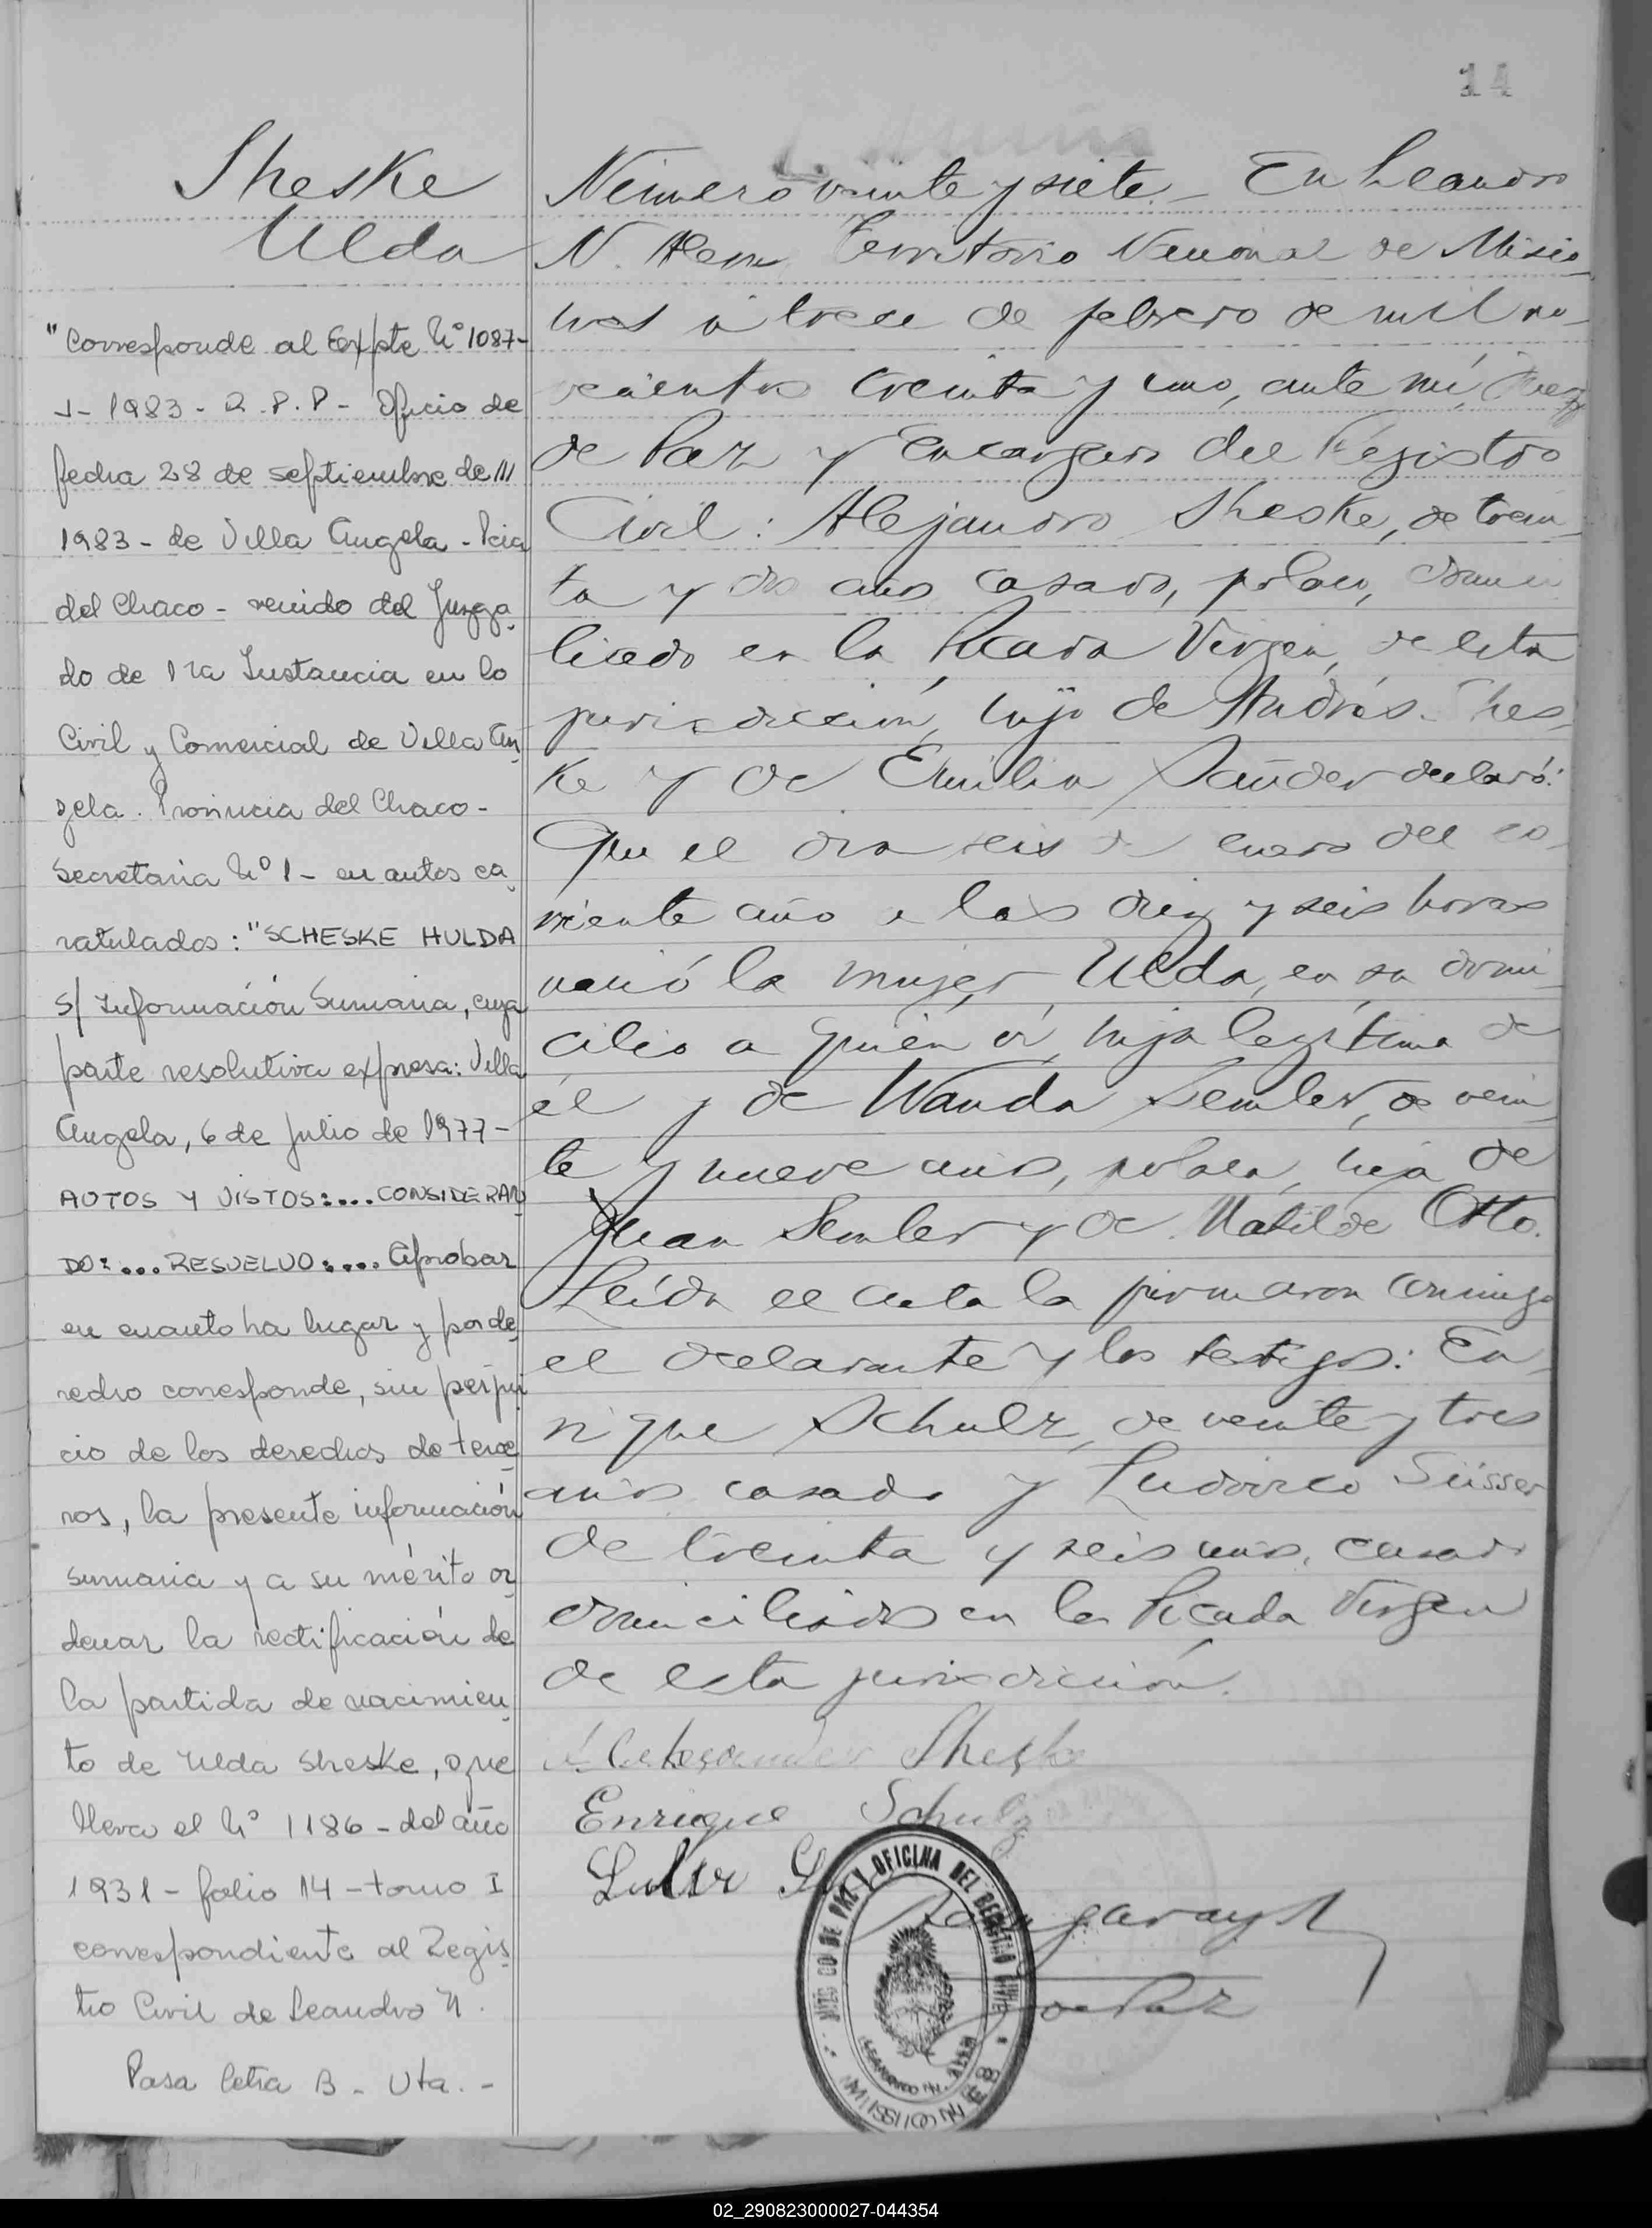 14
Sheske
Ulda
"Corresponde al Expte Nº 1087-
J- 1983 - R.P.P - Oficio de
fecha 28 de septiembre de ///
1983 - de Villa Angela - Pcia
del Chaco - venido del Juzga
do de 1ra Instancia en lo
Civil y Comercial de Villa An
gela. Provincia del Chaco -
Secretaria Nº 1 - en autos ca
ratulados: "SCHESKE HULDA
S/ Información Sumaria, cuya
parte resolutiva expresa: Villa
Angela, 6 de Julio de 1977 -
AUTOS Y VISTOS:... CONSIDERAN
DO:... RESUELVO:.... Aprobar
en cuanto ha lugar y por de
recho corresponde, sin perjui
cio de los derechos de terce
ros, la presente información
sumaria y a su mérito or
denar la rectificación de
la partida de nacimien
to de Ulda Sheske, que
lleva el Nº 1186 - del año
1931 - folio 14 - tomo I
correspondiente al Regis
tro Civil de Leandro N.
Pasa letra B - Uta. -
Número veinte y siete. - En Leandro
N. Alem Territorio Nacional de Misio
nes a trece de febrero de mil no-
vecientos treinta y uno, ante mí, Juez
de Paz y Encargado del Registro
Civil: Alejandro Sheske, de trein
ta y dos años casado, polaco, domici
liado en la Picada Virgen, de esta
jurisdicción, hijo de Andrés Shes-
ke y de Emilia Sauder declaró:
Que el dia seis de enero del co-
rriente año a las diez y seis horas
nació la mujer Ulda, en su domi
cilio a quién ví, hija legítima de
él y de Wanda Semler, de vein
te y nueve años, polaca, hija de
Juan Semler y de Matilde Otto.
Leída el acta la firmaron conmigo
el declarante y los testigos: En
rique Schulz, de veinte y tres
años casado y Ludovico Süsser
de treinta y seis años, casado
domiciliados en la Picada Virgen
de esta jurisdicción.
Sheske
Enrique Schulz
de Paz
DE PAZ Y OFICINA DEL REGISTRO CIVIL
LEANDRO N. ALEM
MISIONES
02_290823000027-044354